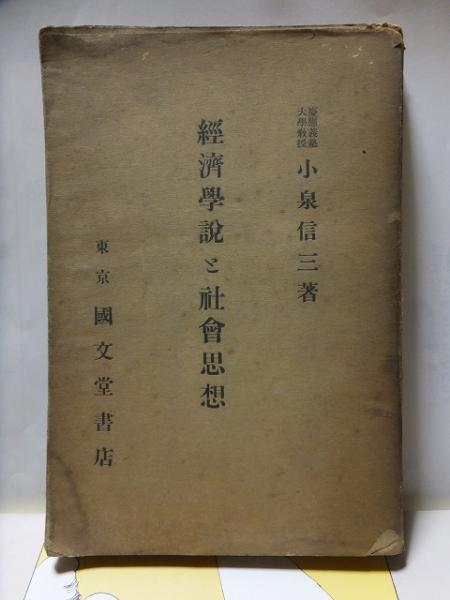 慶應義塾
大學教授
小泉信三著
經濟學說と社會思想
東京 國文堂書店